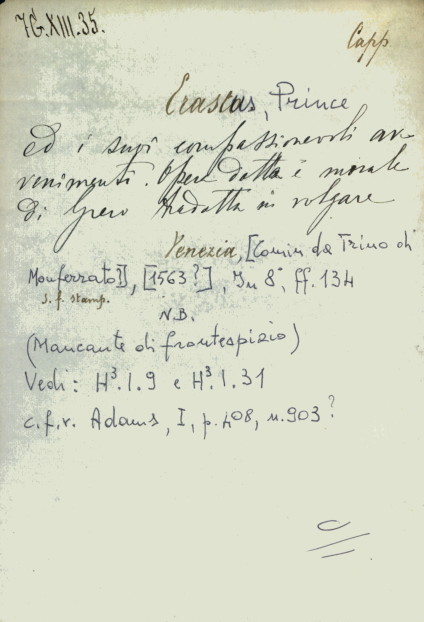 7G.XIII.35.
Capp.
Erastus, Prince
Ed i suoi compassionevoli av-
venimenti. Opera dotta e morale
di greco tradotta in volgare
Venezia, [Comin da Trino di
Monferrato], [1563?], In 8°, ff. 134
s. f. stamp.
N.B.
(Mancante di frontespizio)
Vedi: H³.1.9 e H³.1.31
c.f.r. Adams, I, p. 408, n. 903?